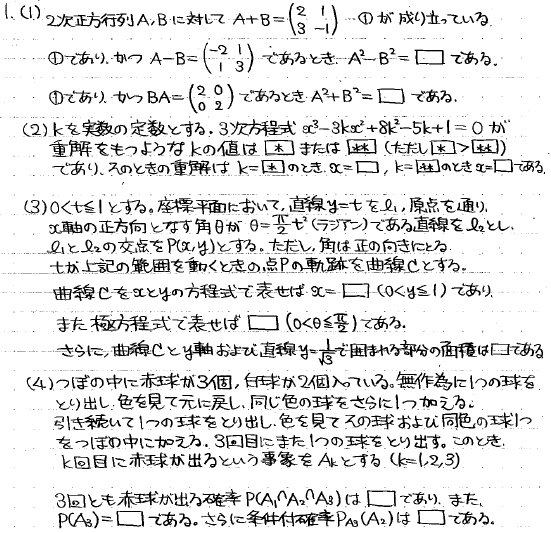 1.(1) 2次正方行列A,Bに対して A+B=(2 1 3 -1) …① が成り立っている.
①であり, かつ A-B=(-2 1 1 3) であるとき A²-B²=□ である.
①であり, かつ BA=(2 0 0 2) であるとき A²+B²=□ である.
(2) kを実数の定数とする. 3次方程式 x³-3kx²+8k²-5k+1=0 が
重解をもつようなkの値は [*] または [**] (ただし[*]>[**])
であり, そのときの重解は k=[*]のとき x=□, k=[**]のとき x=□である.
(3) 0<t≦1とする. 座標平面において, 直線y=tをl₁, 原点を通り,
x軸の正方向となす角θが θ=π/2 t² (ラジアン)である直線をl₂とし,
l₁とl₂の交点をP(x,y)とする. ただし, 角は正の向きにとる.
tが上記の範囲を動くときの点Pの軌跡を曲線Cとする.
曲線Cをxとyの方程式で表せば x=□ (0<y≦1) であり,
また極方程式で表せば □ (0<θ≦π/2) である.
さらに, 曲線Cとy軸および直線y=1/√3で囲まれる部分の面積は□である
(4) つぼの中に赤球が3個, 白球が2個入っている. 無作為に1つの球を
とり出し, 色を見て元に戻し, 同じ色の球をさらに1つ加える.
引き続いて1つの球をとり出し, 色を見てその球および同色の球1つ
をつぼの中に加える. 3回目にまた1つの球をとり出す. このとき,
k回目に赤球が出るという事象をAkとする (k=1,2,3)
3回とも赤球が出る確率P(A₁∩A₂∩A₃)は □ であり, また,
P(A₃)=□ である. さらに条件付確率P_A₃(A₂)は □ である.